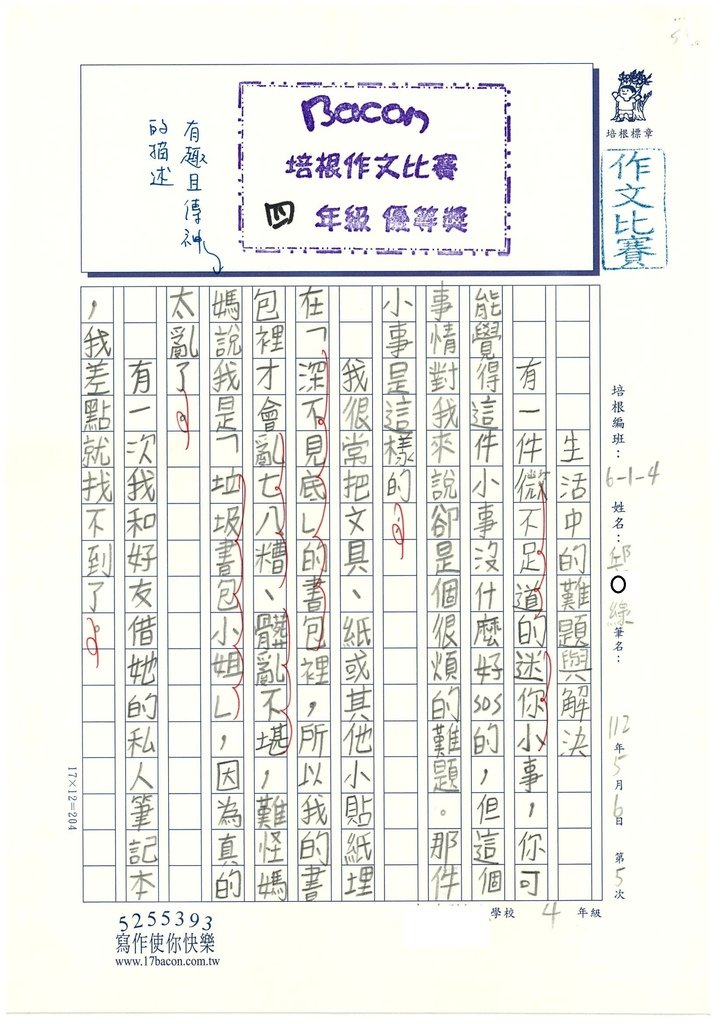 培根標章
作文比賽
Bacon
培根作文比賽
四 年級 優等獎
有趣且傳神
的描述
培根編班：6-1-4 姓名：邱〇綠 筆名： 112年5月6日 第5次
學校 4 年級
生活中的難題與解決
有一件微不足道的迷你小事，你可
能覺得這件小事沒什麼好sos的，但這個
事情對我來說卻是個很煩的難題。那件
小事是這樣的。
我很常把文具、紙或其他小貼紙埋
在「深不見底」的書包裡，所以我的書
包裡才會亂七八糟、髒亂不堪，難怪媽
媽說我是「垃圾書包小姐」，因為真的
太亂了。
有一次我和好友借她的私人筆記本
，我差點就找不到了。
17×12=204
5255393
寫作使你快樂
www.17bacon.com.tw